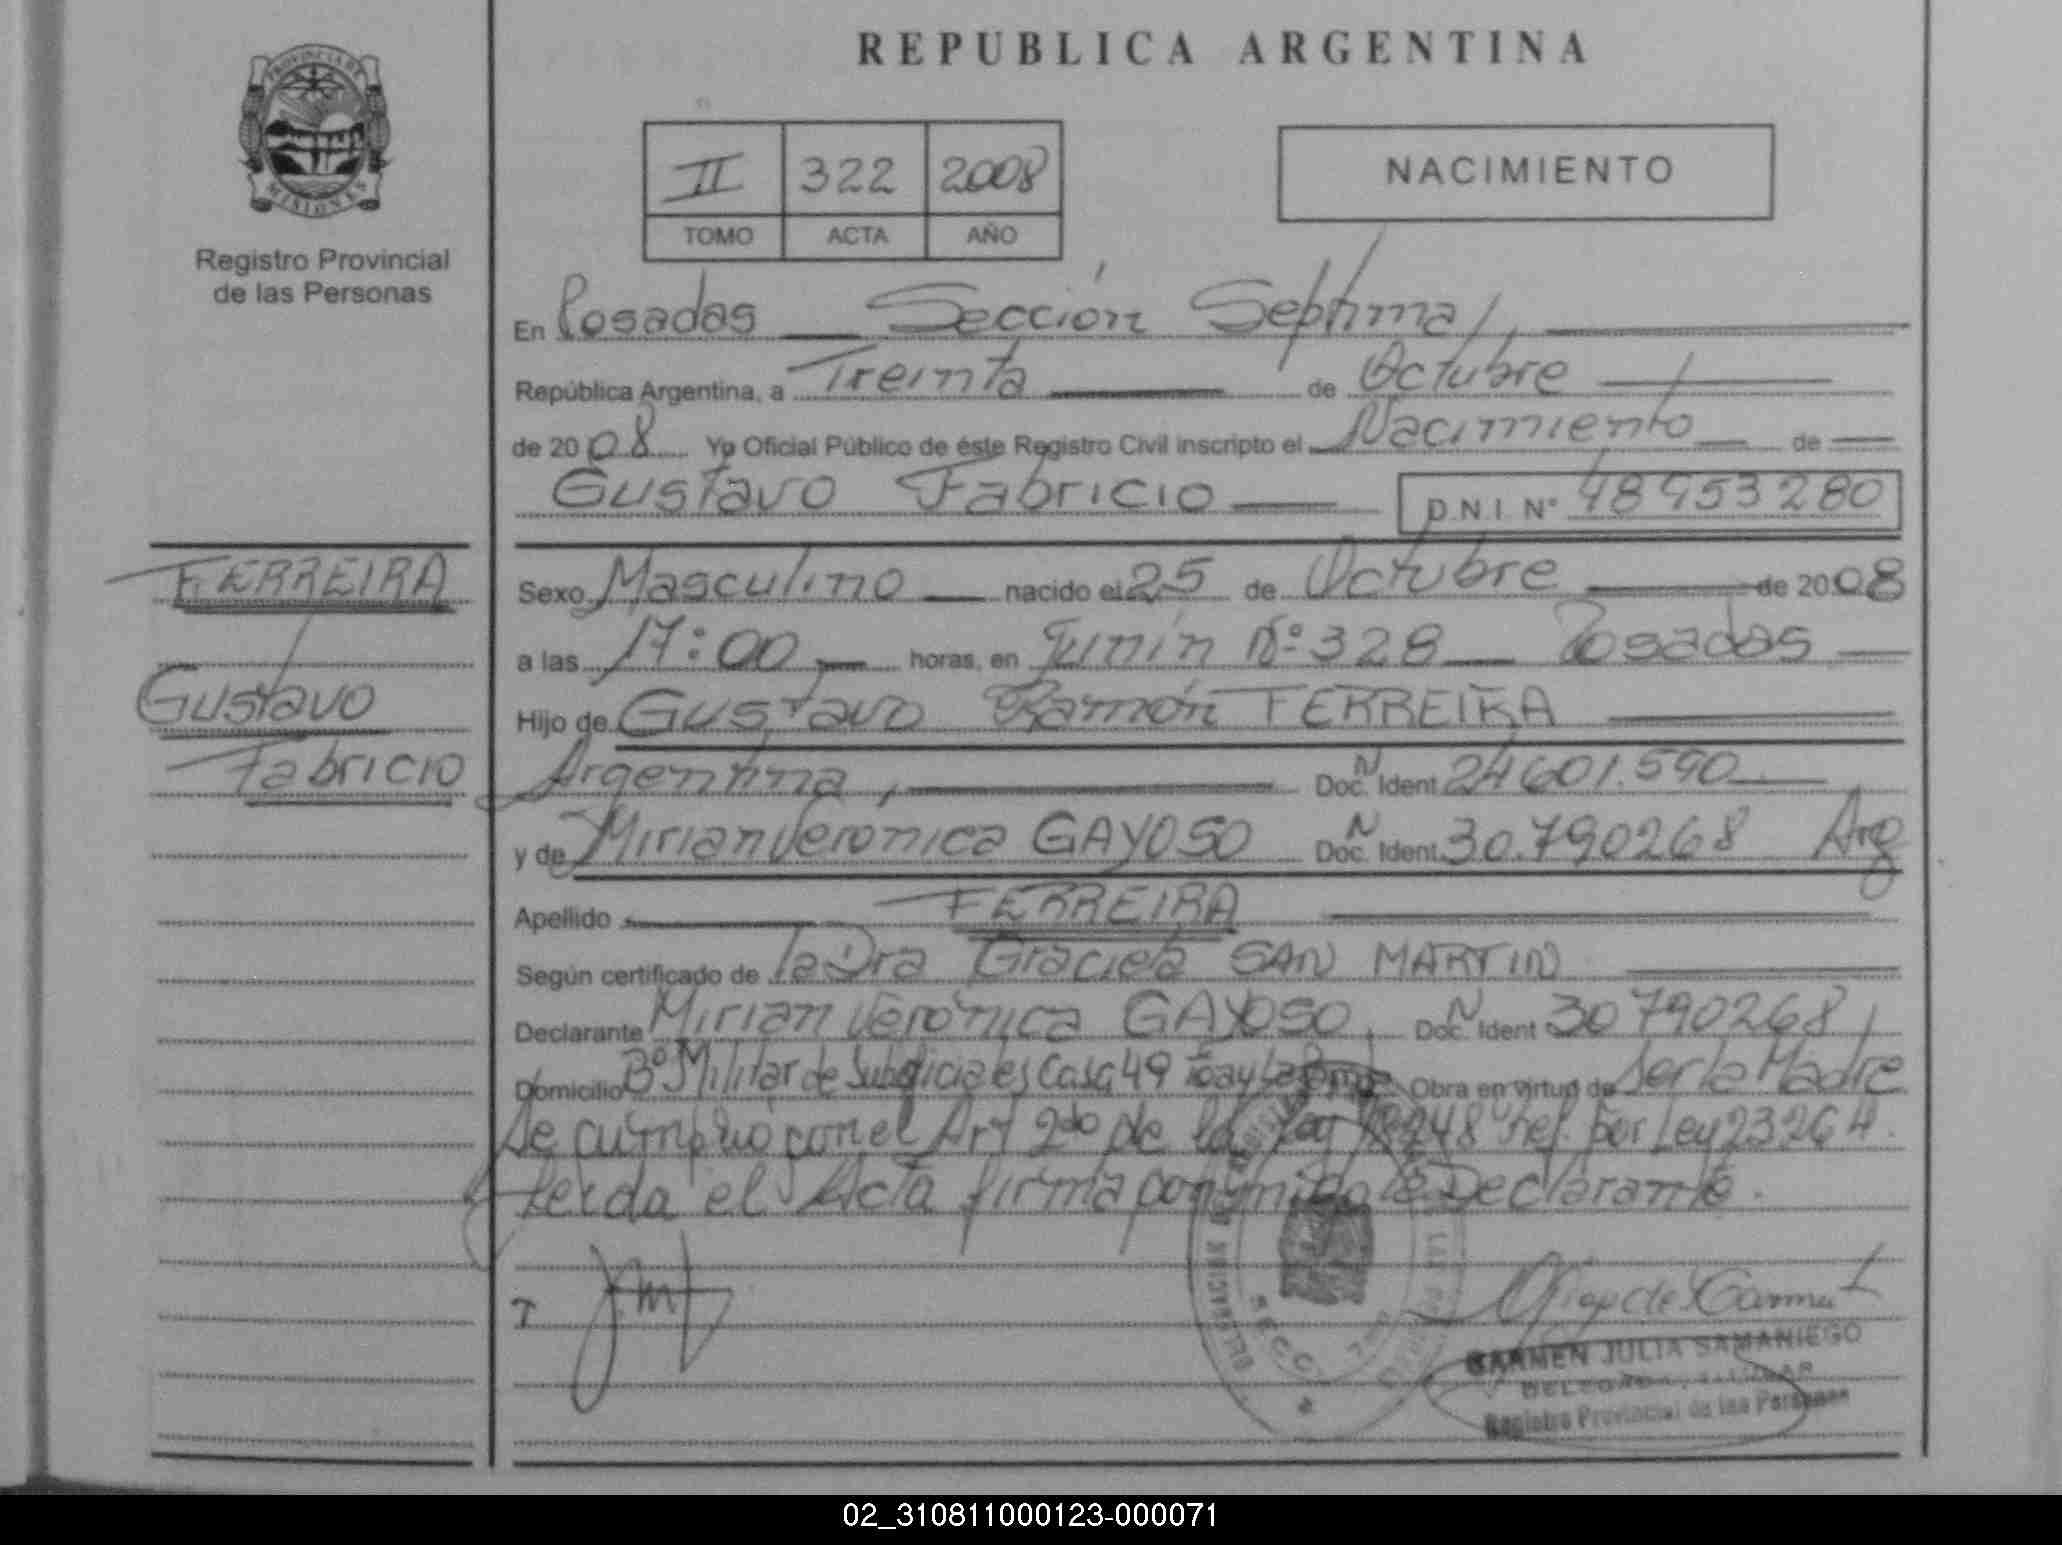 REPUBLICA ARGENTINA
PROVINCIA DE
MISIONES
Registro Provincial
de las Personas
II 322 2008
TOMO ACTA AÑO
NACIMIENTO
En Posadas Sección Septima,
República Argentina, a Treinta de Octubre
de 2008 Yo Oficial Público de éste Registro Civil inscripto el Nacimiento de
Gustavo Fabricio D.N.I. N° 48953280
FERREIRA
Gustavo
Fabricio
Sexo Masculino nacido el 25 de Octubre de 2008
a las 17:00 horas, en Junín Nº 328 Posadas
Hijo de Gustavo Ramón FERREIRA
Argentina, Doc. N Ident. 24601.590
y de Mirian Verónica GAYOSO Doc. N Ident. 30.790268 Arg
Apellido FERREIRA
Según certificado de la Dra Graciela SAN MARTIN
Declarante Mirian Verónica GAYOSO, Doc. N Ident 30790268,
Domicilio Bº Militar de Suboficiales Casa 49 Obra en virtud de Ser la Madre
Se cumplió con el Art 2do de la Ley 18248 ref. por Ley 23264.
Leida el Acta firma conmigo la Declarante.
CARMEN JULIA SAMANIEGO
Registro Provincial de las Personas
02_310811000123-000071